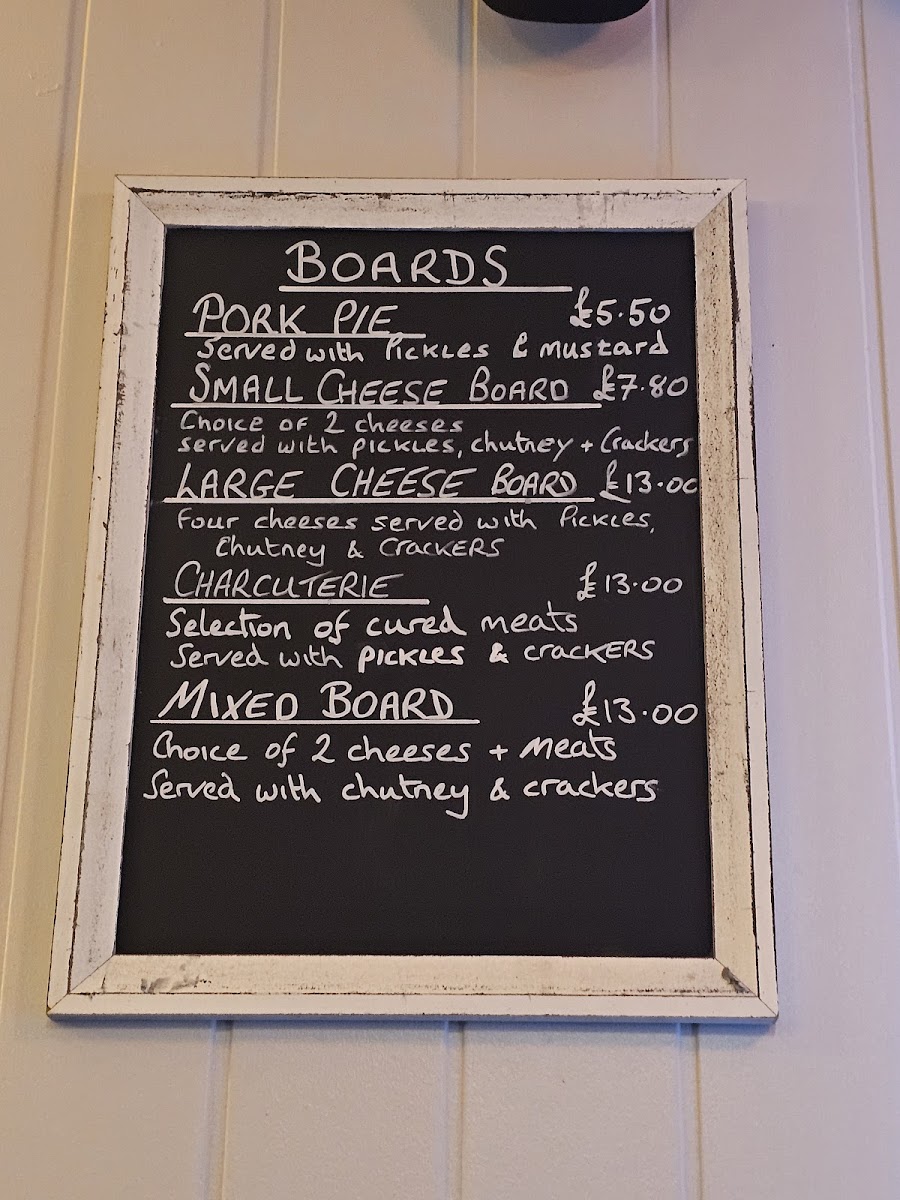 BOARDS
PORK PIE £5.50
Served with Pickles & mustard
SMALL CHEESE BOARD £7.80
Choice of 2 cheeses
served with pickles, chutney + Crackers
LARGE CHEESE BOARD £13.00
Four cheeses served with Pickles,
Chutney & CRACKERS
CHARCUTERIE £13.00
Selection of cured meats
Served with PICKLES & CRACKERS
MIXED BOARD £13.00
Choice of 2 cheeses + Meats
Served with chutney & crackers